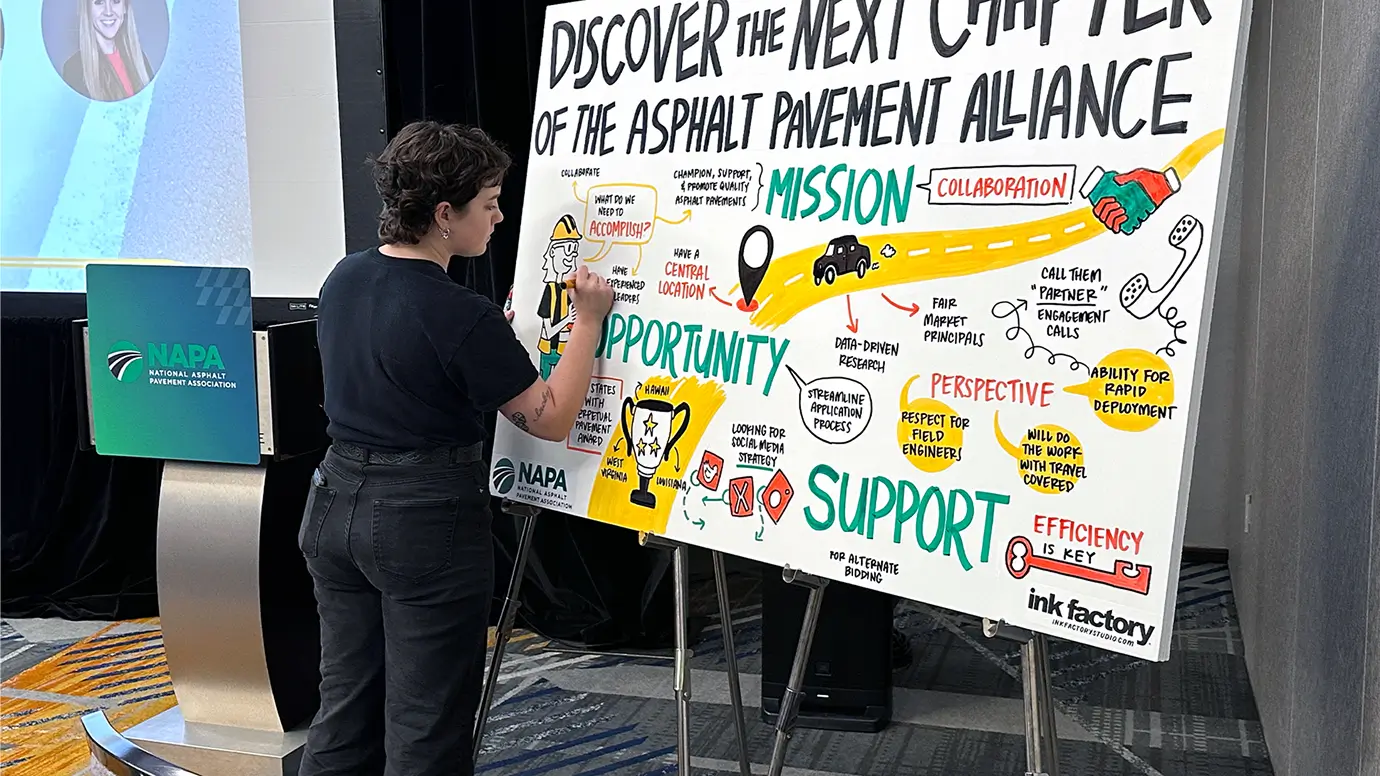 DISCOVER THE NEXT CHAPTER
OF THE ASPHALT PAVEMENT ALLIANCE
COLLABORATE
CHAMPION, SUPPORT,
& PROMOTE QUALITY
ASPHALT PAVEMENTS
MISSION
COLLABORATION
WHAT DO WE
NEED TO
ACCOMPLISH?
HAVE
EXPERIENCED
LEADERS
HAVE A
CENTRAL
LOCATION
DATA-DRIVEN
RESEARCH
FAIR
MARKET
PRINCIPALS
CALL THEM
"PARTNER"
ENGAGEMENT
CALLS
OPPORTUNITY
STREAMLINE
APPLICATION
PROCESS
PERSPECTIVE
ABILITY FOR
RAPID
DEPLOYMENT
RESPECT FOR
FIELD
ENGINEERS
WILL DO
THE WORK
WITH TRAVEL
COVERED
STATES
WITH
PERPETUAL
PAVEMENT
AWARD
HAWAII
WEST
VIRGINIA
LOUISIANA
LOOKING FOR
SOCIAL MEDIA
STRATEGY
X
SUPPORT
FOR ALTERNATE
BIDDING
EFFICIENCY
IS KEY
ink factory
INKFACTORYSTUDIO.COM
NAPA
NATIONAL ASPHALT
PAVEMENT ASSOCIATION
NAPA
NATIONAL ASPHALT
PAVEMENT ASSOCIATION